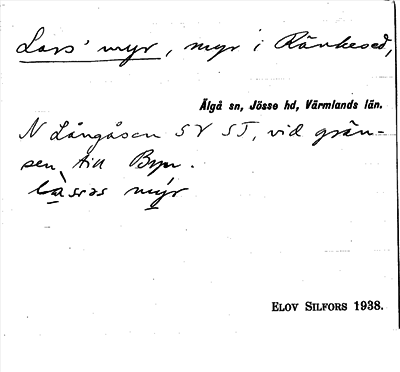 Lars' myr, myr i Ränkesed,
Älgå sn, Jösse hd, Värmlands län.
N Långåsen SV ST, vid grän-
sen till Byn.
myr
ELOV SILFORS 1938.